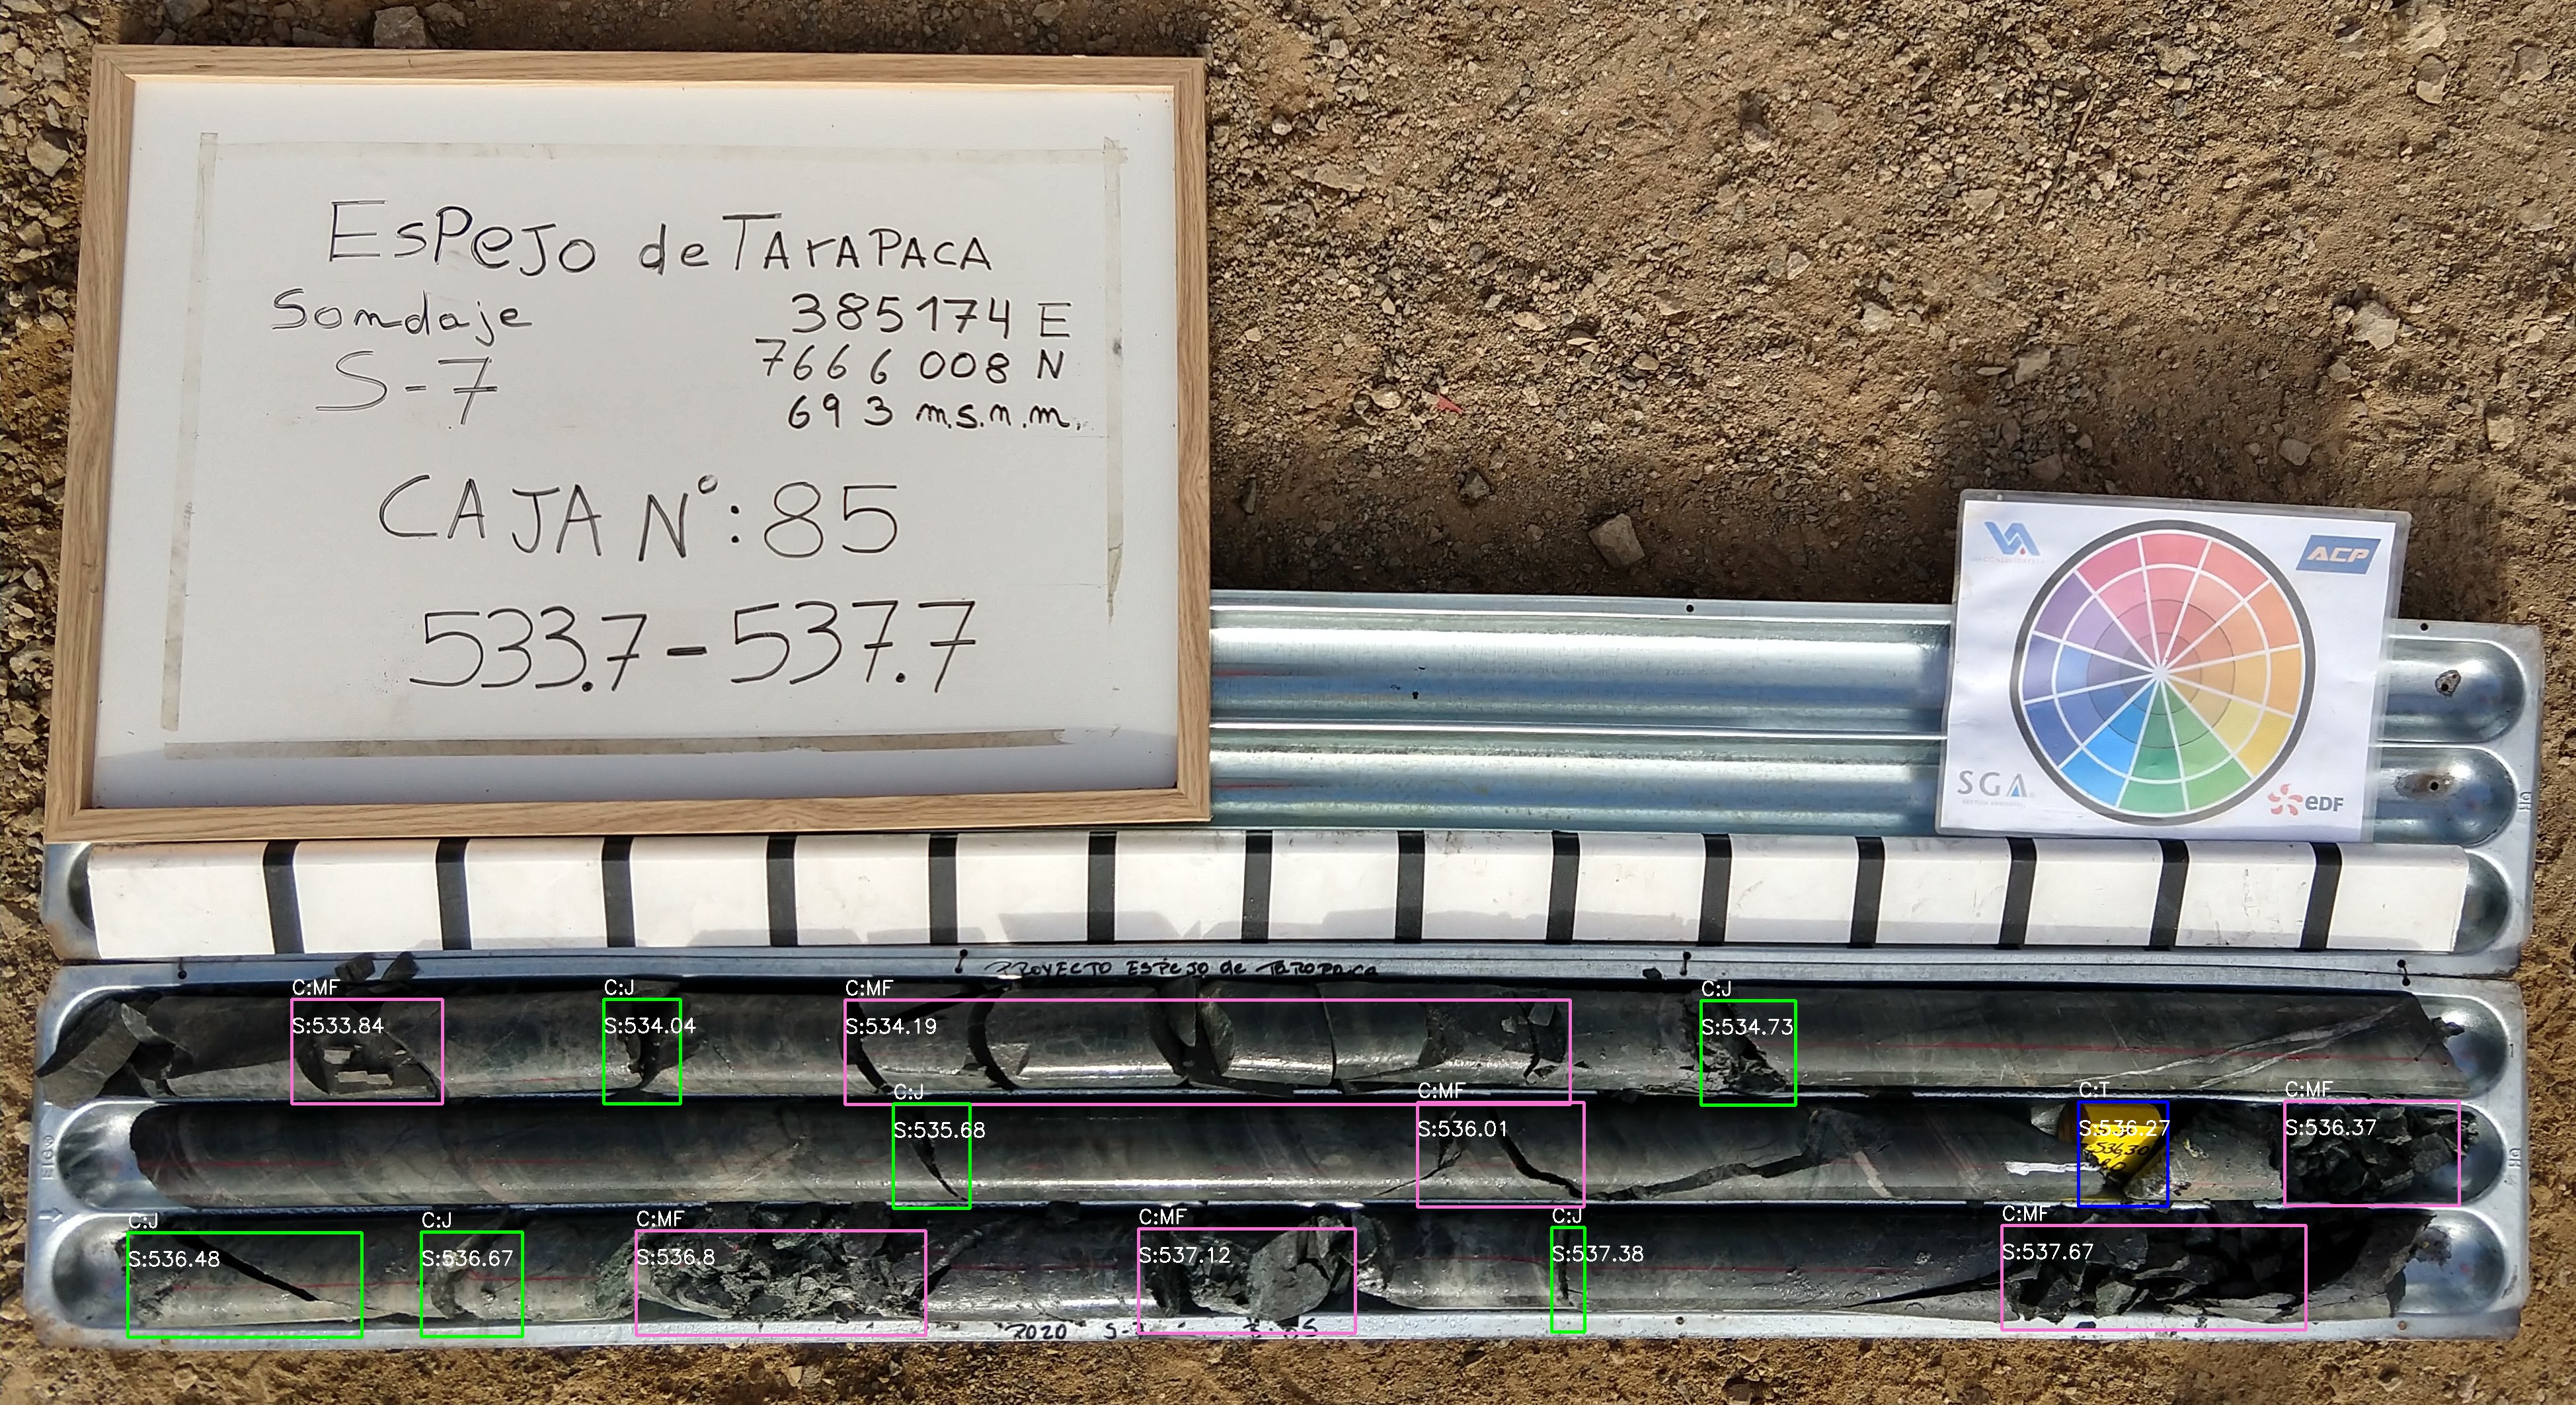 ESPEJO de TArAPACA
Sondaje
385174 E
S-7
7666008 N
693 m.s.n.m.
CAJA N°: 85
533.7 - 537.7
ACP
SGA
eDF
PROYECTO ESPEJO de TAROPACA
C:MF
S:533.84
C:J
S:534.04
C:MF
S:534.19
C:J
S:534.73
C:J
S:535.68
C:MF
S:536.01
C:T
S:536.27
536.30
C:MF
S:536.37
C:J
S:536.48
C:J
S:536.67
C:MF
S:536.8
C:MF
S:537.12
C:J
S:537.38
C:MF
S:537.67
2020 S-